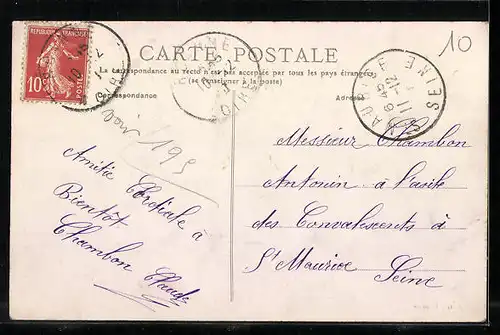 10
REPUBLIQUE FRANÇAISE
10c
POSTES
CARTE POSTALE
La correspondance au recto n'est pas acceptée par tous les pays étrangers
(se renseigner à la Poste)
Correspondance
Adresse
SEINE
voir 195
Amitié Cordiale à
Bientôt
Chambon Claude
Messieur Chambon
Antonin à l'asile
des Convalescents à
St Maurice
Seine